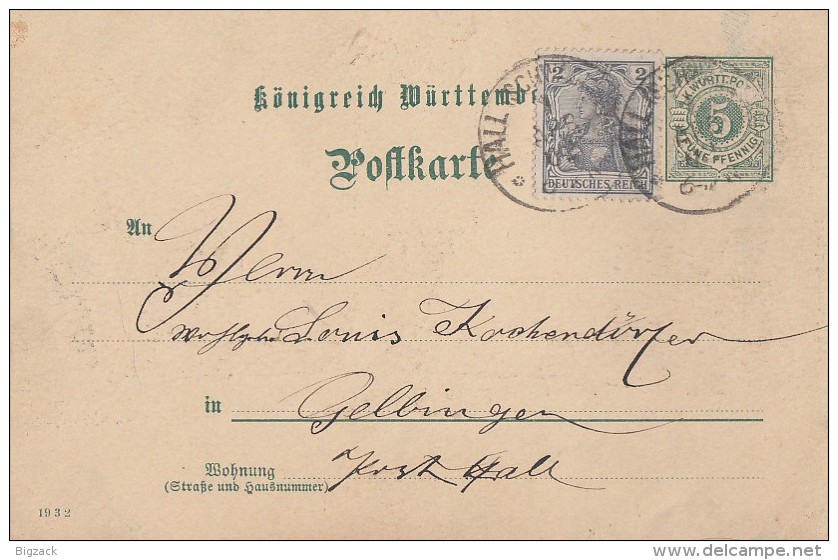 Königreich Württemb
Postkarte
2 2
DEUTSCHES REICH
HALL (SCHW
HALL (SCHW
K. WÜRTT. PO
5
FÜNF PFENNIG
An Herrn
Wohlgeb. Louis Kochendörfer
in Gelbingen
Wohnung Post Hall
(Straße und Hausnummer)
1932
Bigzack
delcampe.net